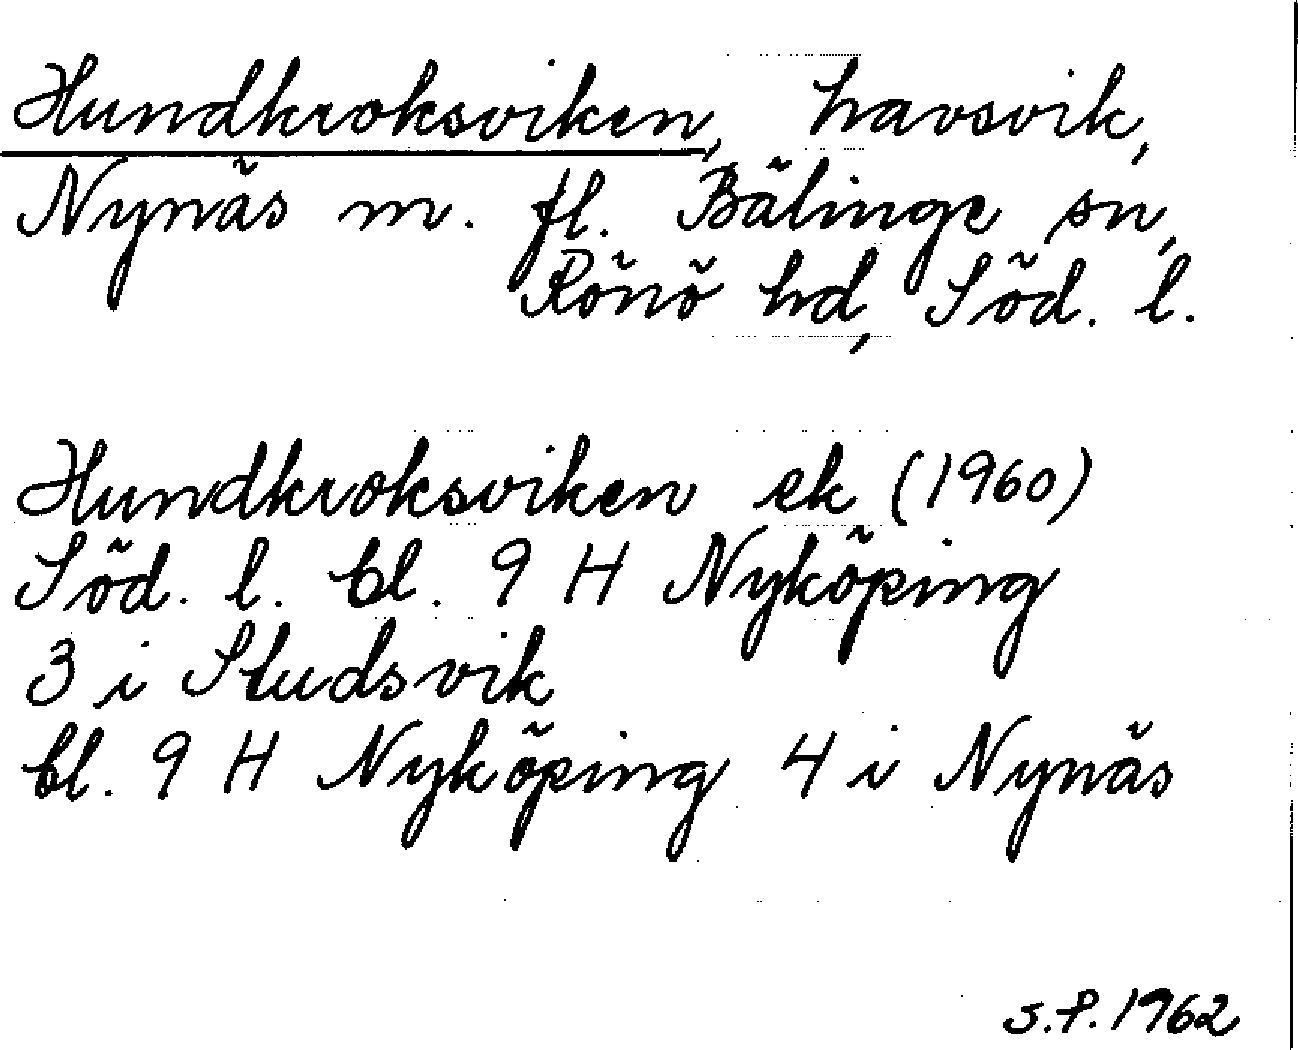 Hundkroksviken, havsvik,
Nynäs m. fl. Bälinge sn,
Rönö hd, Söd. l.
Hundkroksviken ek (1960)
Söd. l. bl. 9 H Nyköping
3 i Studsvik
bl. 9 H Nyköping 4 i Nynäs
S.P. 1962